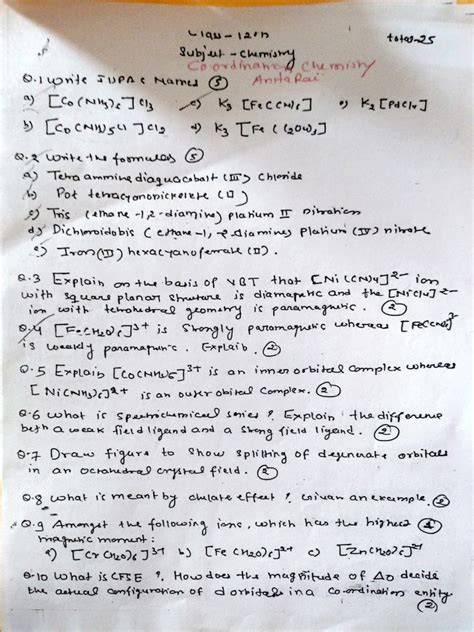 Class - 12th
total-25
Subject - Chemistry
Coordinancy Chemistry
Q.1 Write IUPAC Names (5)
Anita Rai
a) [Co(NH3)6]Cl3 c) K3 [Fe(CN)6] e) K2[PdCl4]
b) [Co(NH3)5Cl]Cl2 d) K3 [Fe(C2O4)3]
Q.2 Write the formulas (5)
a) Tetraamminediaquacobalt (III) Chloride
b) Pot tetracyanonickelete (II)
c) Tris (ethane-1,2-diamine) platium II
d) Dichloridobis (ethane-1, 2-diamine) platium (IV) nitrate
e) Iron(III) hexacyanoferrate (II).
Q.3 Explain on the basis of VBT that [Ni(CN)4]2- ion
with square planar structure is diamagnetic and the [NiCl4]2-
ion with tetrahedral geometry is paramagnetic. (2)
Q.4 [Fe(H2O)6]3+ is Strongly paramagnetic whereas [Fe(CN)6]3-
is weakly paramagnetic. Explain. (2)
Q.5 Explain [Co(NH3)6]3+ is an inner orbital complex whereas
[Ni(NH3)6]2+ is an outer obital complex. (2)
Q.6 What is spectrochemical series? Explain the difference
beth a weak field ligand and a Strong field ligand. (2)
Q.7 Draw figure to show splitting of degenerate orbitals
in an octahedral crystal field. (2)
Q.8 What is meant by chelate effect? Given an example. (2)
Q.9 Amongst the following ions, which has the highest (1)
magnetic moment:
a) [Cr(H2O)6]3+ b) [Fe(H2O)6]2+ c) [Zn(H2O)6]2+
Q.10 What is CFSE? How does the magnitude of Δo decide
the actual configuration of d orbitals in a Co-ordination entity
(2)